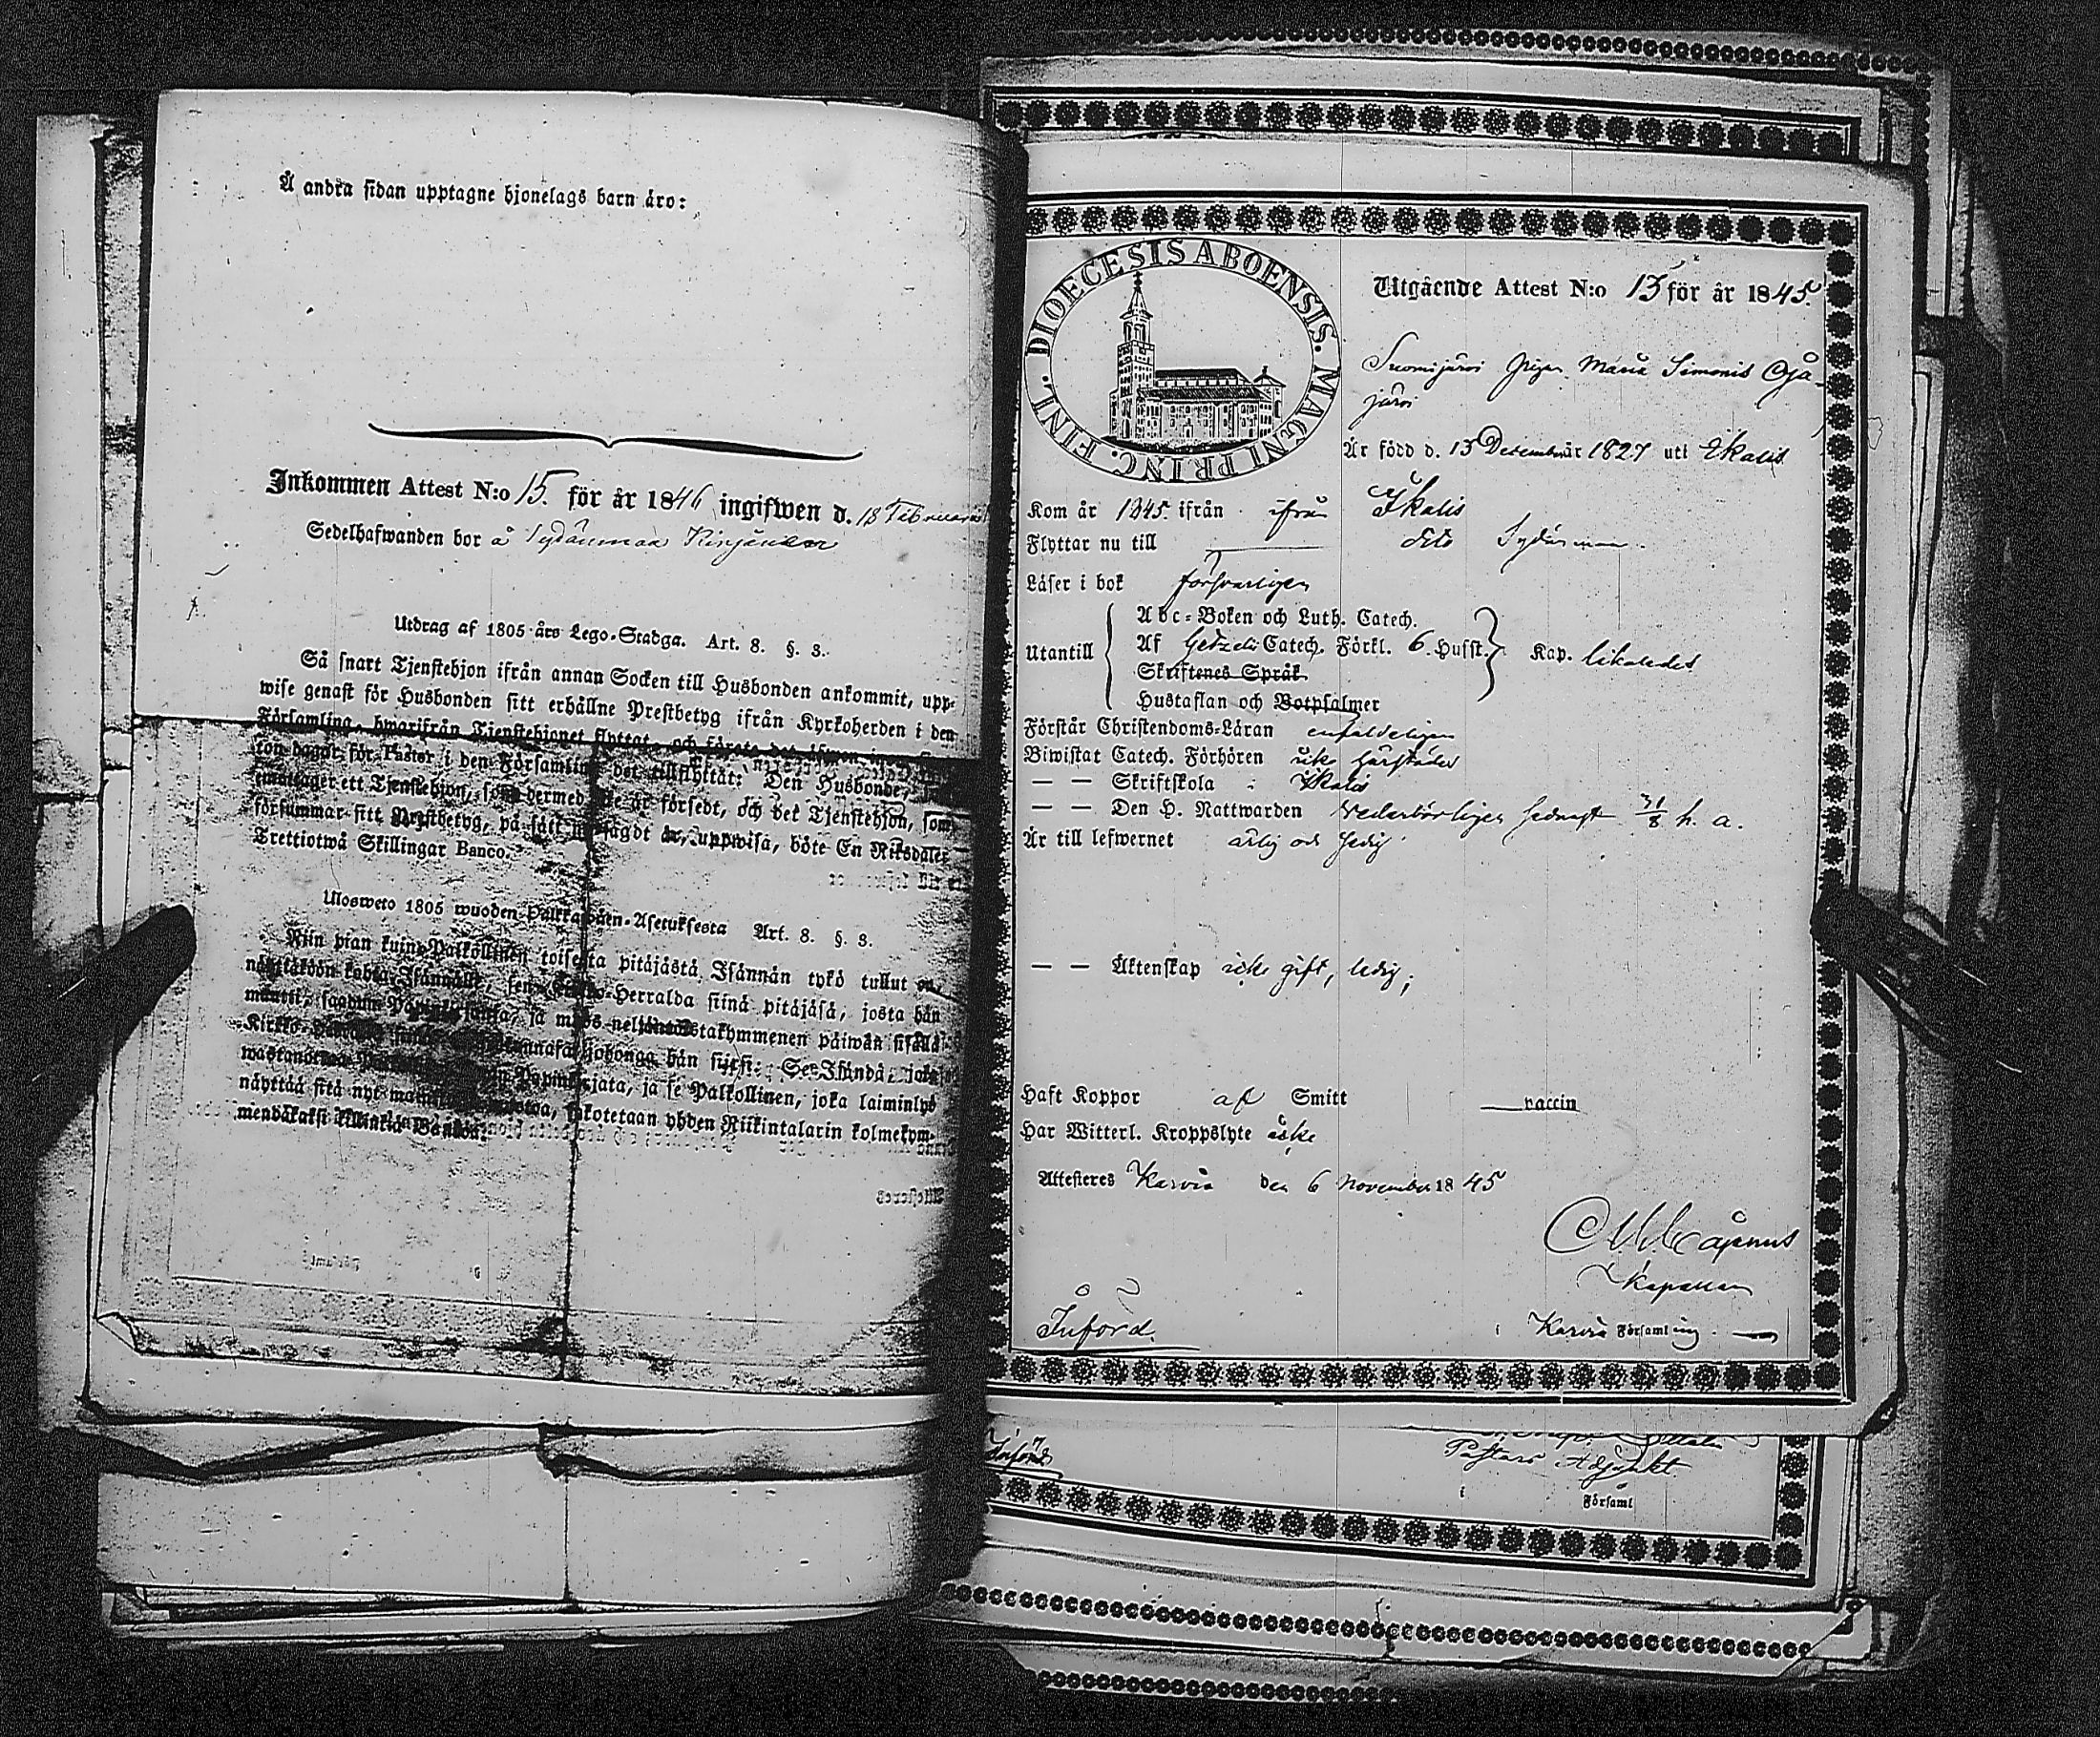 Å andra sidan upptagne hjonelags barn äro:
Inkommen Attest N:o 15. för år 1846 ingifwen d. 18 Februari
Sedelhafwanden bor å Sydänmaa
Utdrag af 1805 års Lego-Stadga. Art. 8. §. 3.
Så snart Tjenstehjon ifrån annan Socken till Husbonden ankommit, upp-
wise genast för Husbonden sitt erhållne Prestbetyg ifrån Kyrkoherden i den
Församling, hwarifrån Tjenstehjonet flyttat, och
ton dagar för Pastor i den Församling det tillflyttat: Den Husbonde,
emottager ett Tjenstehjon, som dermed är försedt, och det Tjenstehjon, som
försummar sitt Prestbetyg, på sätt sagdt är, uppwisa, böte En Riksdaler
Trettiotwå Skillingar Banco.
Ulosweto 1805 wuoden Palkkawäen-Asetuksesta Art. 8. §. 3.
Niin pian kuin Palkollinen toisesta pitäjästä Isännän tykö tullut on,
näyttäköön kohta Isännälle, sen Kirkko-Herralda siinä pitäjäsä, josta hän
muutti, saadun Papinkirjansa, ja myös neljäntoistakymmenen päiwän sisällä
Kirkko- hän siirsi: Se Isändä, joka
Papinkirjata, ja se Palkollinen, joka laiminlyö
näyttää sitä nyt sakotetaan yhden Riikintalarin kolmekym-
mendäkaksi Killinkiä Bankoa.
DIOECESIS ABOENSIS. MAGNI PRINC. FINL.
Utgående Attest N:o 13 för år 1845.
Suomijärvi Maria Simonis Oja-
järvi
Är född d. 13 December år 1827 uti Ikalis
Kom år 1845. ifrån ifrån Ikalis
Flyttar nu till dito Sydänmaa
Läser i bok försvarligen
Utantill
Abc-Boken och Luth. Catech.
Af Getzelii Catech. Förkl. 6. Hufst. Kap. likaledes
Skriftenes Språk
Hustaflan och Botpsalmer
Förstår Christendoms-Läran enfaldeligen
Biwistat Catech. Förhören icke härstädes
— — Skriftskola : Ikalis
— — Den H. Nattwarden vederbörligen sednast 31/8 h. a.
Är till lefwernet ärlig och sedig
— — Äktenskap icke gift, ledig;
Haft Koppor af Smitt vaccin
Har Witterl. Kroppslyte icke
Attesteres Karvia den 6 November 1845
Kapellan
i Karvia Församling.
Införd.
Införd
Pastors Adjunkt
i Församl